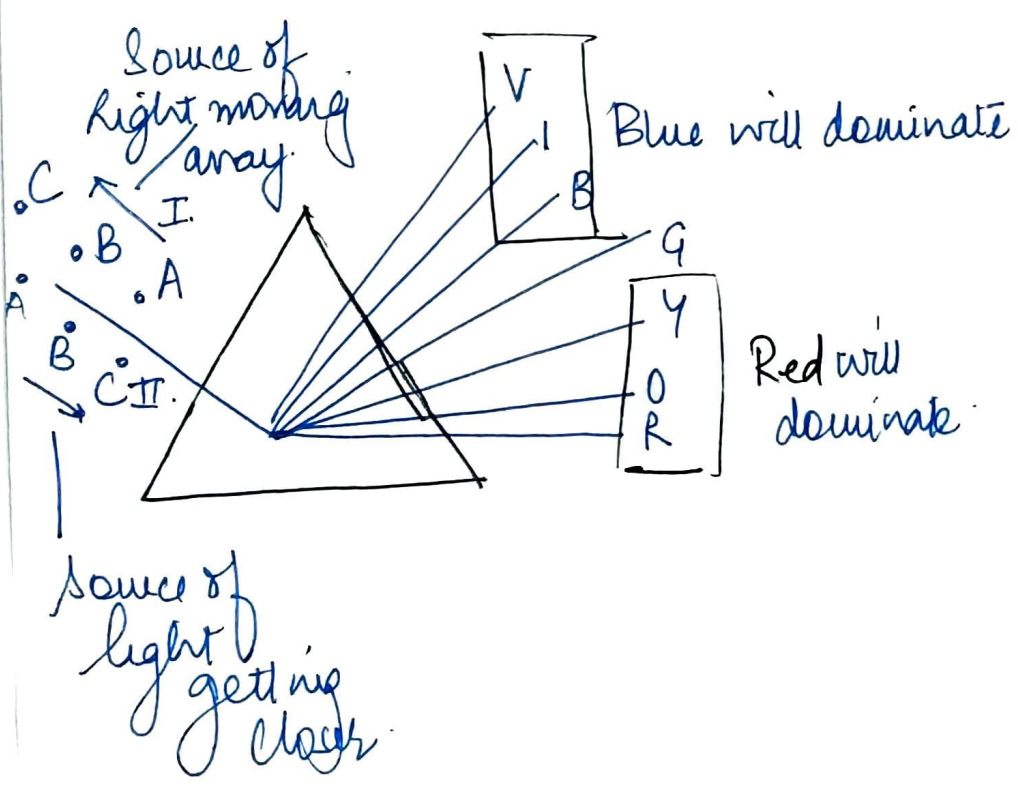 Source of
light moving
away.
C
I.
B
A
A
B
C II.
Source of
light
getting
closer.
V
I
B
G
Blue will dominate
Y
O
R
Red will
dominate.